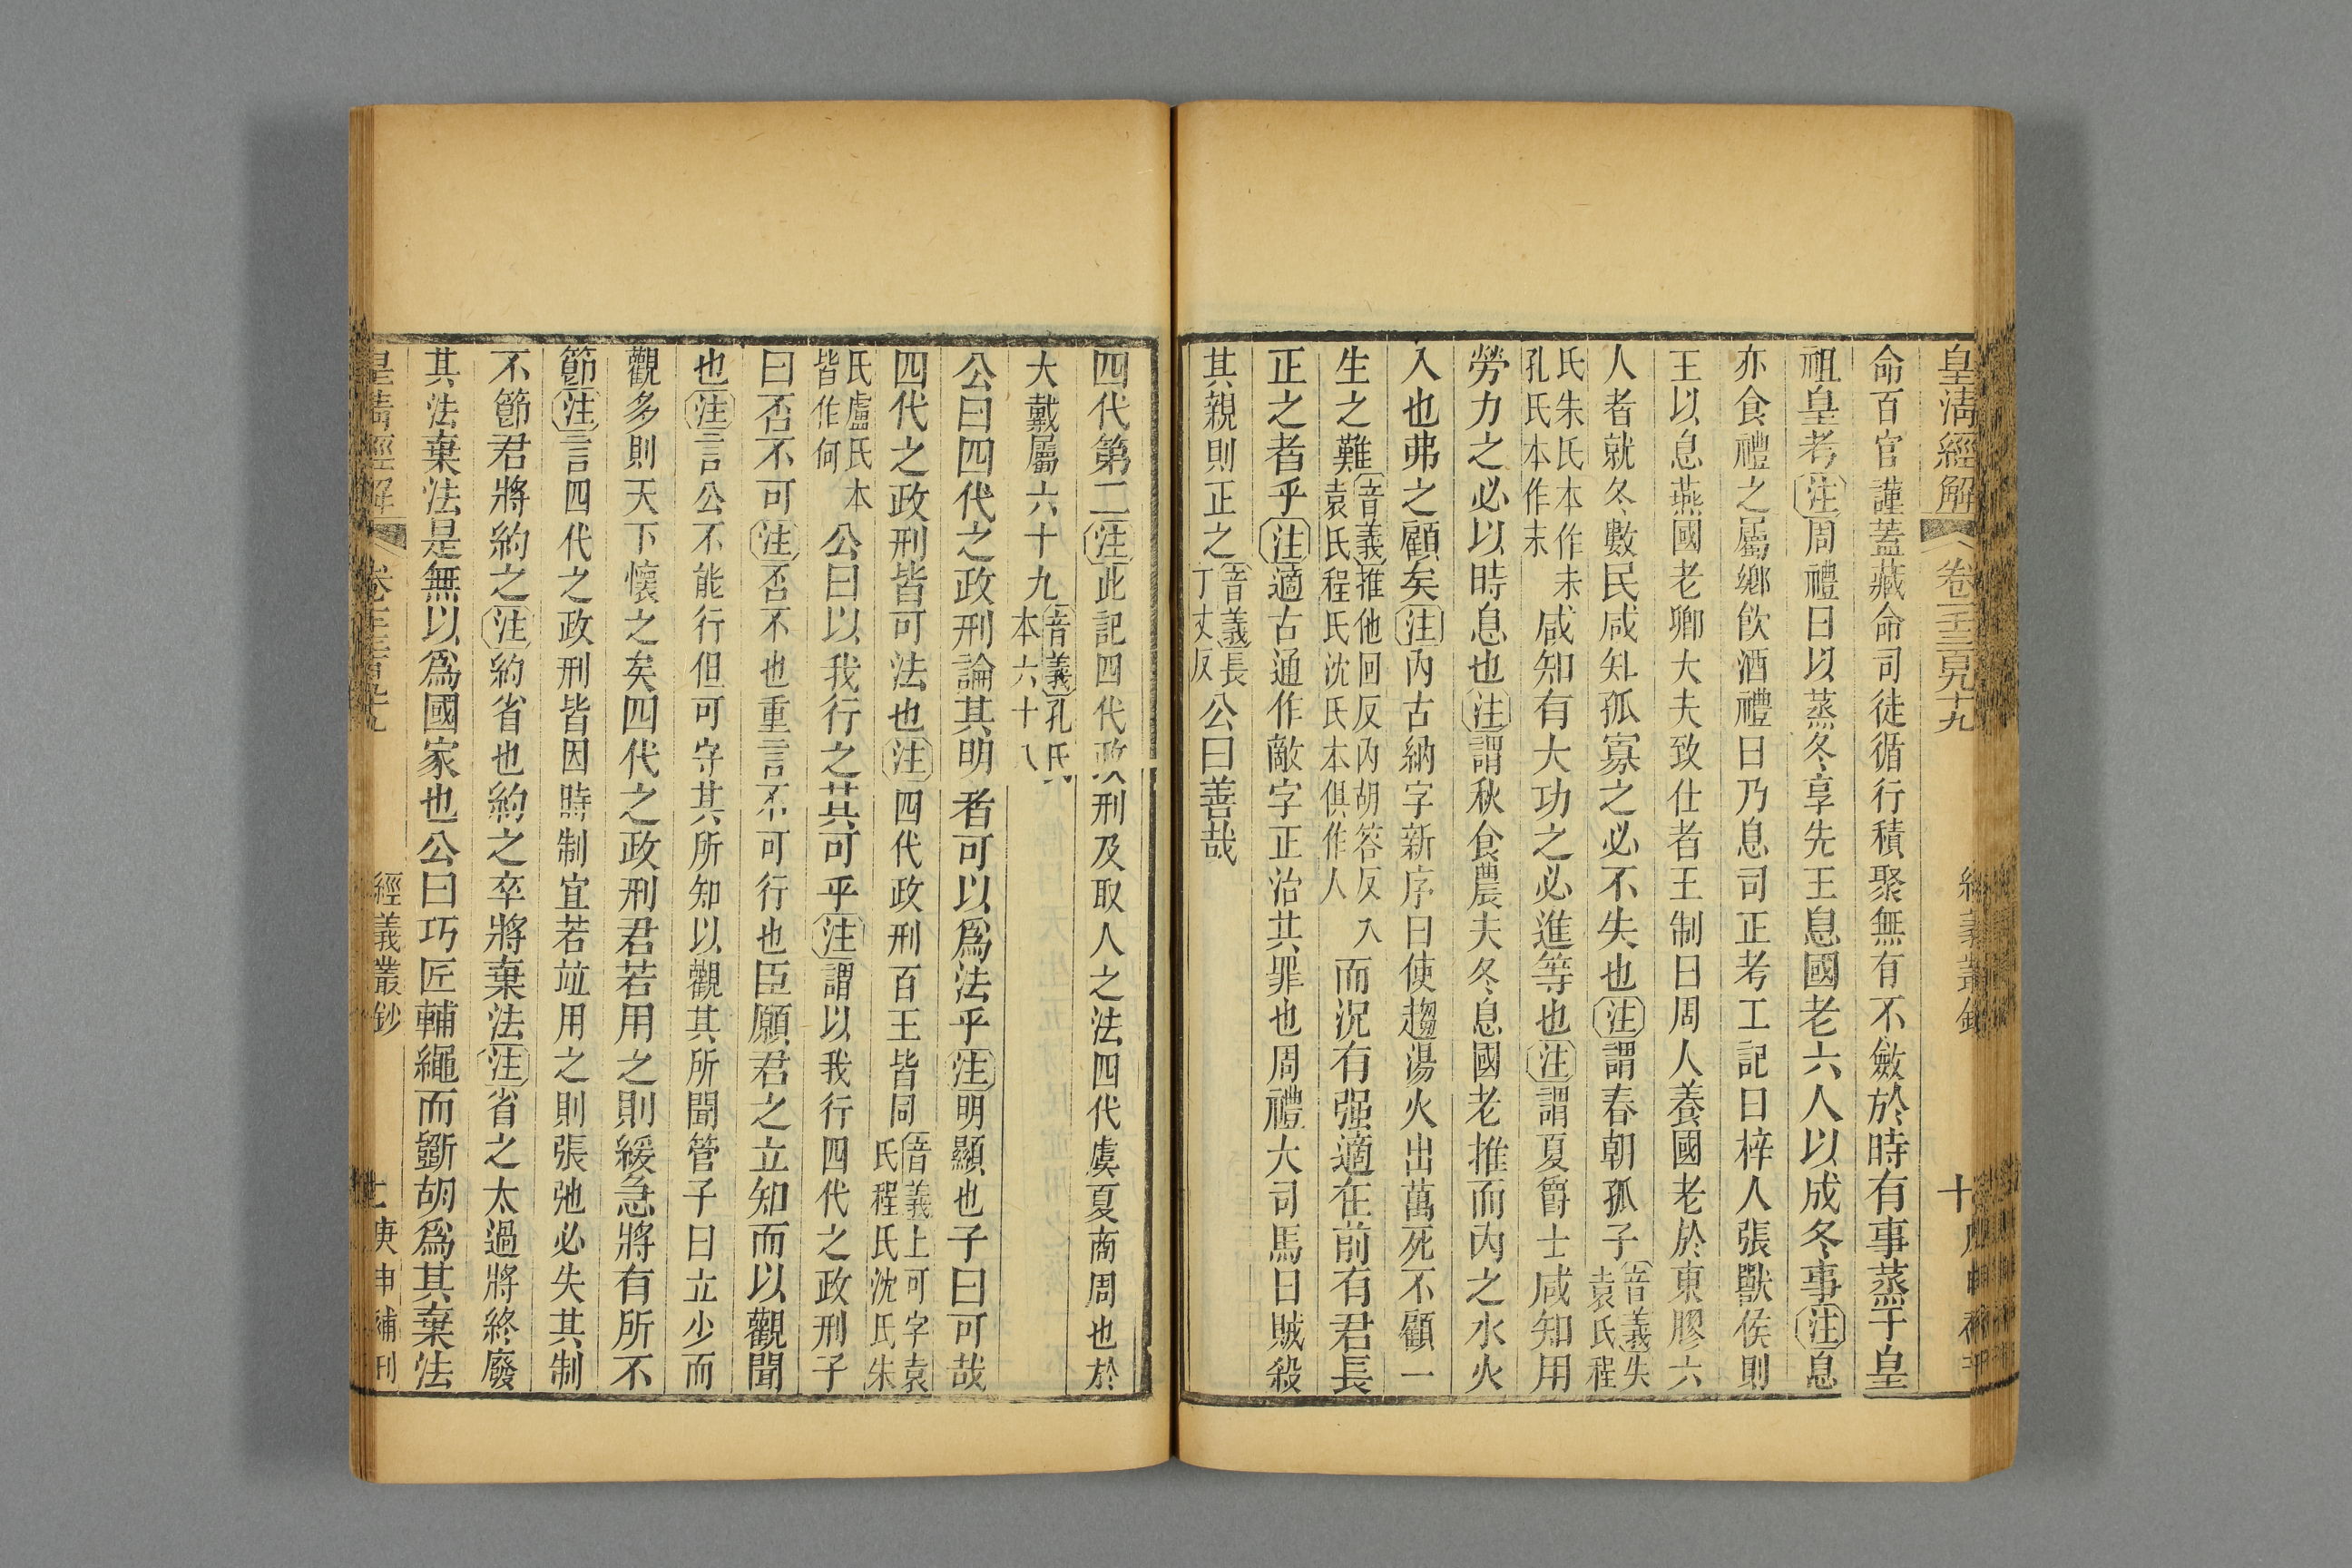 皇清經解 卷一千三百九十九 經義叢鈔 十 庚申補刊
命百官謹蓋藏命司徒循行積聚無有不斂於時有事蒸于皇
祖皇考注周禮曰以蒸冬享先王息國老六人以成冬事注息
亦食禮之屬鄉飲酒禮曰乃息司正考工記曰梓人張獸侯則
王以息燕國老卿大夫致仕者王制曰周人養國老於東膠六
人者就冬數民咸知孤寡之必不失也注謂春朝孤子音義失袁氏程
氏朱氏本作未孔氏本作末咸知有大功之必進等也注謂夏爵士咸知用
勞力之必以時息也注謂秋食農夫冬息國老推而內之水火
入也弗之顧矣注內古納字新序曰使趨湯火出萬死不顧一
生之難音義推他回反內胡答反入袁氏程氏沈氏本俱作人而況有强適在前有君長
正之者乎注適古通作敵字正治其罪也周禮大司馬曰賊殺
其親則正之音義長丁丈反公曰善哉
四代第二注此記四代政刑及取人之法四代虞夏商周也於
大戴屬六十九音義孔氏本六十八
公曰四代之政刑論其明者可以爲法乎注明顯也子曰可哉
四代之政刑皆可法也注四代政刑百王皆同音義上可字袁氏程氏沈氏朱
氏盧氏本皆作何公曰以我行之其可乎注謂以我行四代之政刑子
曰否不可注否不也重言不可行也臣願君之立知而以觀聞
也注言公不能行但可守其所知以觀其所聞管子曰立少而
觀多則天下懷之矣四代之政刑君若用之則緩急將有所不
節注言四代之政刑皆因時制宜若竝用之則張弛必失其制
不節君將約之注約省也約之卒將棄法注省之太過將終廢
其法棄法是無以爲國家也公曰巧匠輔繩而斲胡爲其棄法
皇清經解 卷一千三百九十九 經義叢鈔 庚申補刊